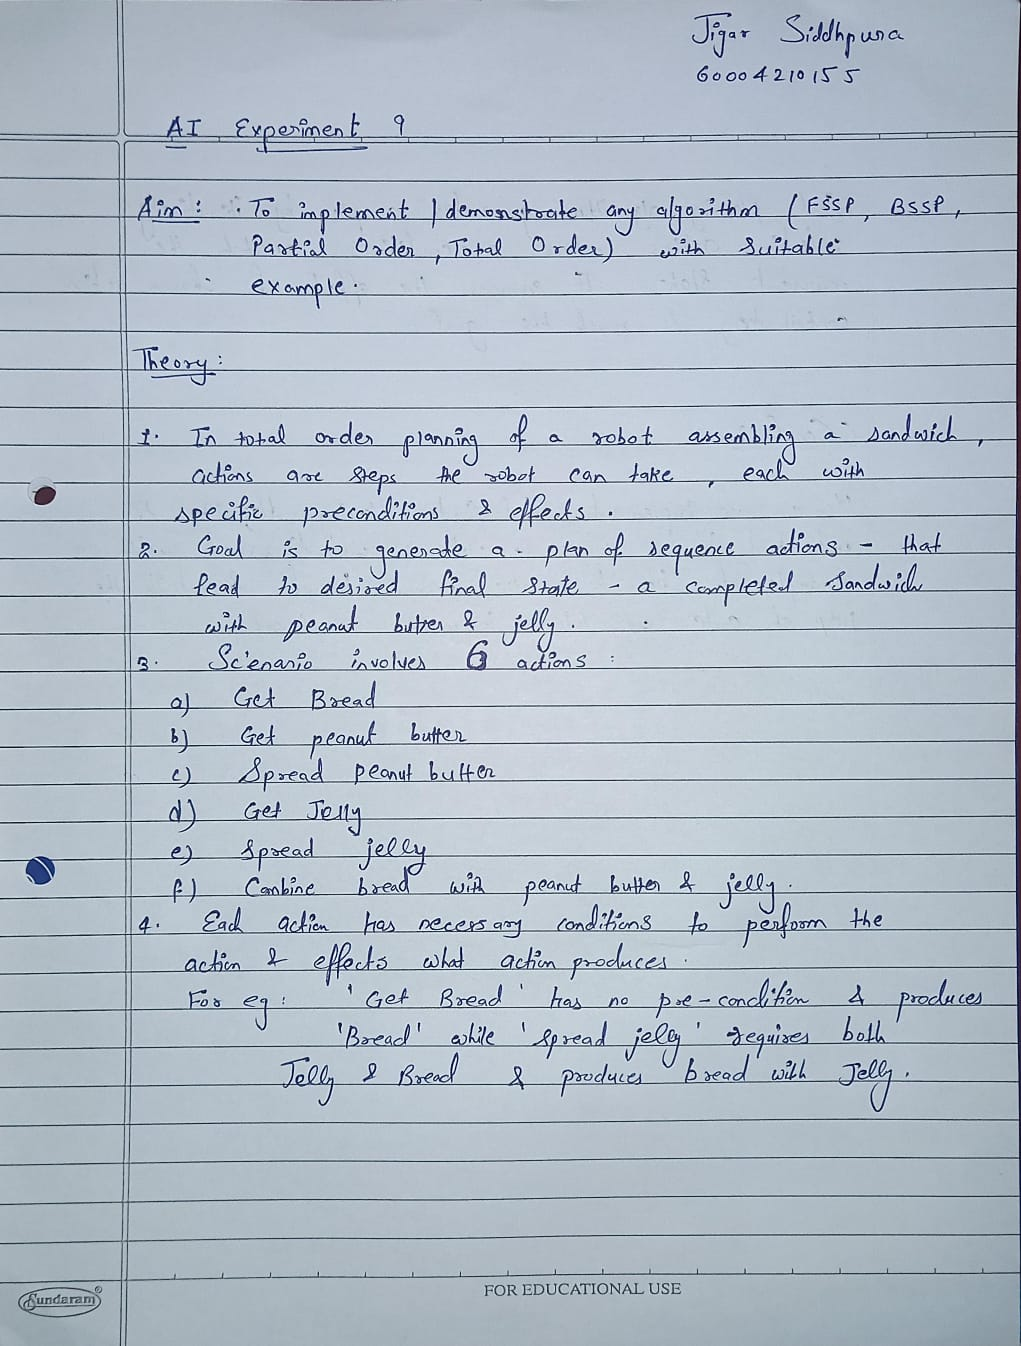 Jigar Siddhpura
60004210155
AI Experiment 9
Aim : To implement / demonstrate any algorithm (FSSP, BSSP,
Partial Order, Total Order) with Suitable
example.
Theory :
1. In total order planning of a robot assembling a sandwich,
actions are steps the robot can take, each with
specific preconditions & effects.
2. Goal is to generate a plan of sequence actions - that
lead to desired final state - a completed sandwich
with peanut butter & jelly.
3. Scenario involves 6 actions :
a) Get Bread
b) Get peanut butter
c) Spread peanut butter
d) Get Jelly
e) Spread jelly
f) Combine bread with peanut butter & jelly.
4. Each action has necessary conditions to perform the
action & effects what action produces.
For eg : 'Get Bread' has no pre-condition & produces
'Bread' while 'spread jelly' requires both
Jelly & Bread & produces bread with Jelly.
FOR EDUCATIONAL USE
Sundaram